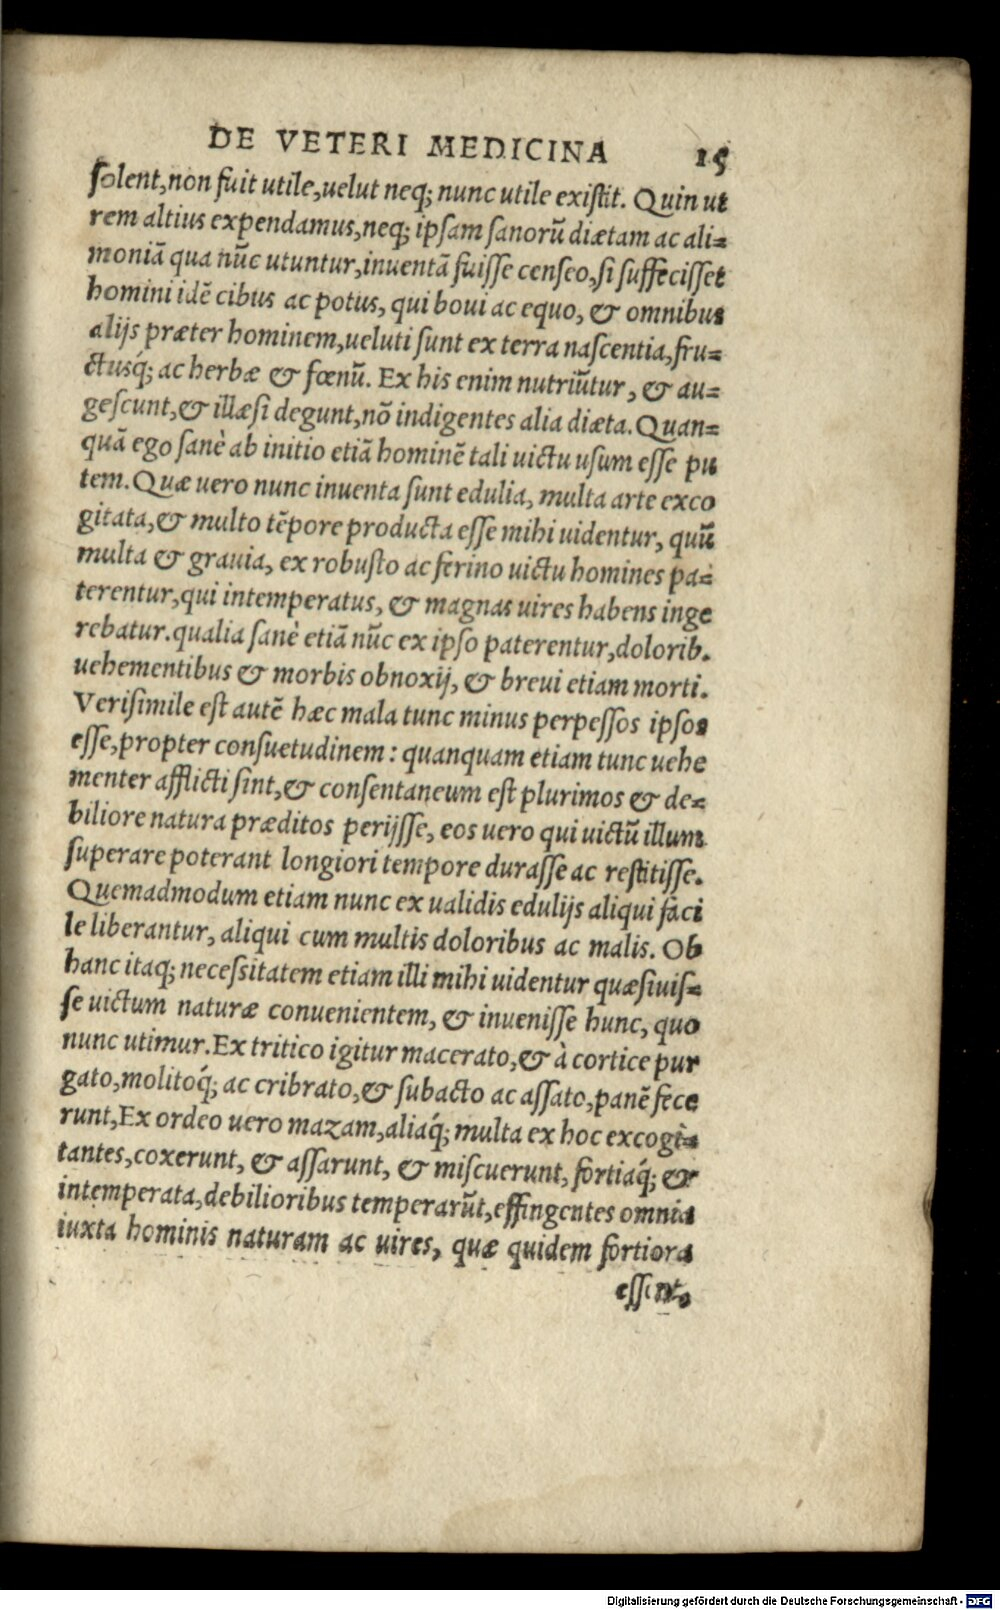 DE VETERI MEDICINA 15
ſolent,non fuit utile,uelut neq; nunc utile exiſtit. Quin ut
rem altius expendamus,neq; ipſam ſanorũ diætam ac ali=
moniã qua nũc utuntur,inuentã fuiſſe cenſeo,ſi ſuffeciſſet
homini idẽ cibus ac potus, qui boui ac equo, & omnibus
alijs præter hominem,ueluti ſunt ex terra naſcentia,fru=
ctusq́; ac herbæ & fœnũ. Ex his enim nutriũtur, & au=
geſcunt,& illæſi degunt,nõ indigentes alia diæta. Quan=
quã ego ſanè ab initio etiã hominẽ tali uictu uſum eſſe pu
tem. Quæ uero nunc inuenta ſunt edulia, multa arte exco
gitata,& multo tẽpore producta eſſe mihi uidentur, quũ
multa & grauia, ex robuſto ac ferino uictu homines pa=
terentur,qui intemperatus, & magnas uires habens inge
rebatur.qualia ſanè etiã nũc ex ipſo paterentur,dolorib.
uehementibus & morbis obnoxij, & breui etiam morti.
Veriſimile eſt autẽ hæc mala tunc minus perpeſſos ipſos
eſſe,propter conſuetudinem: quanquam etiam tunc uehe
menter afflicti ſint,& conſentaneum eſt plurimos & de=
biliore natura præditos perijſſe, eos uero qui uictũ illum
ſuperare poterant longiori tempore duraſſe ac reſtitiſſe.
Quemadmodum etiam nunc ex ualidis edulijs aliqui faci
le liberantur, aliqui cum multis doloribus ac malis. Ob
hanc itaq; neceſsitatem etiam illi mihi uidentur quæſiuiſ=
ſe uictum naturæ conuenientem, & inueniſſe hunc, quo
nunc utimur.Ex tritico igitur macerato,& à cortice pur
gato,molitoq́; ac cribrato,& ſubacto ac aſſato,panẽ fece
runt,Ex ordeo uero mazam,aliaq́; multa ex hoc excogi=
tantes,coxerunt, & aſſarunt, & miſcuerunt, fortiaq́; &
intemperata,debilioribus temperarũt,effingentes omnia
iuxta hominis naturam ac uires, quæ quidem fortiora
eſſent,
Digitalisierung gefördert durch die Deutsche Forschungsgemeinschaft - DFG